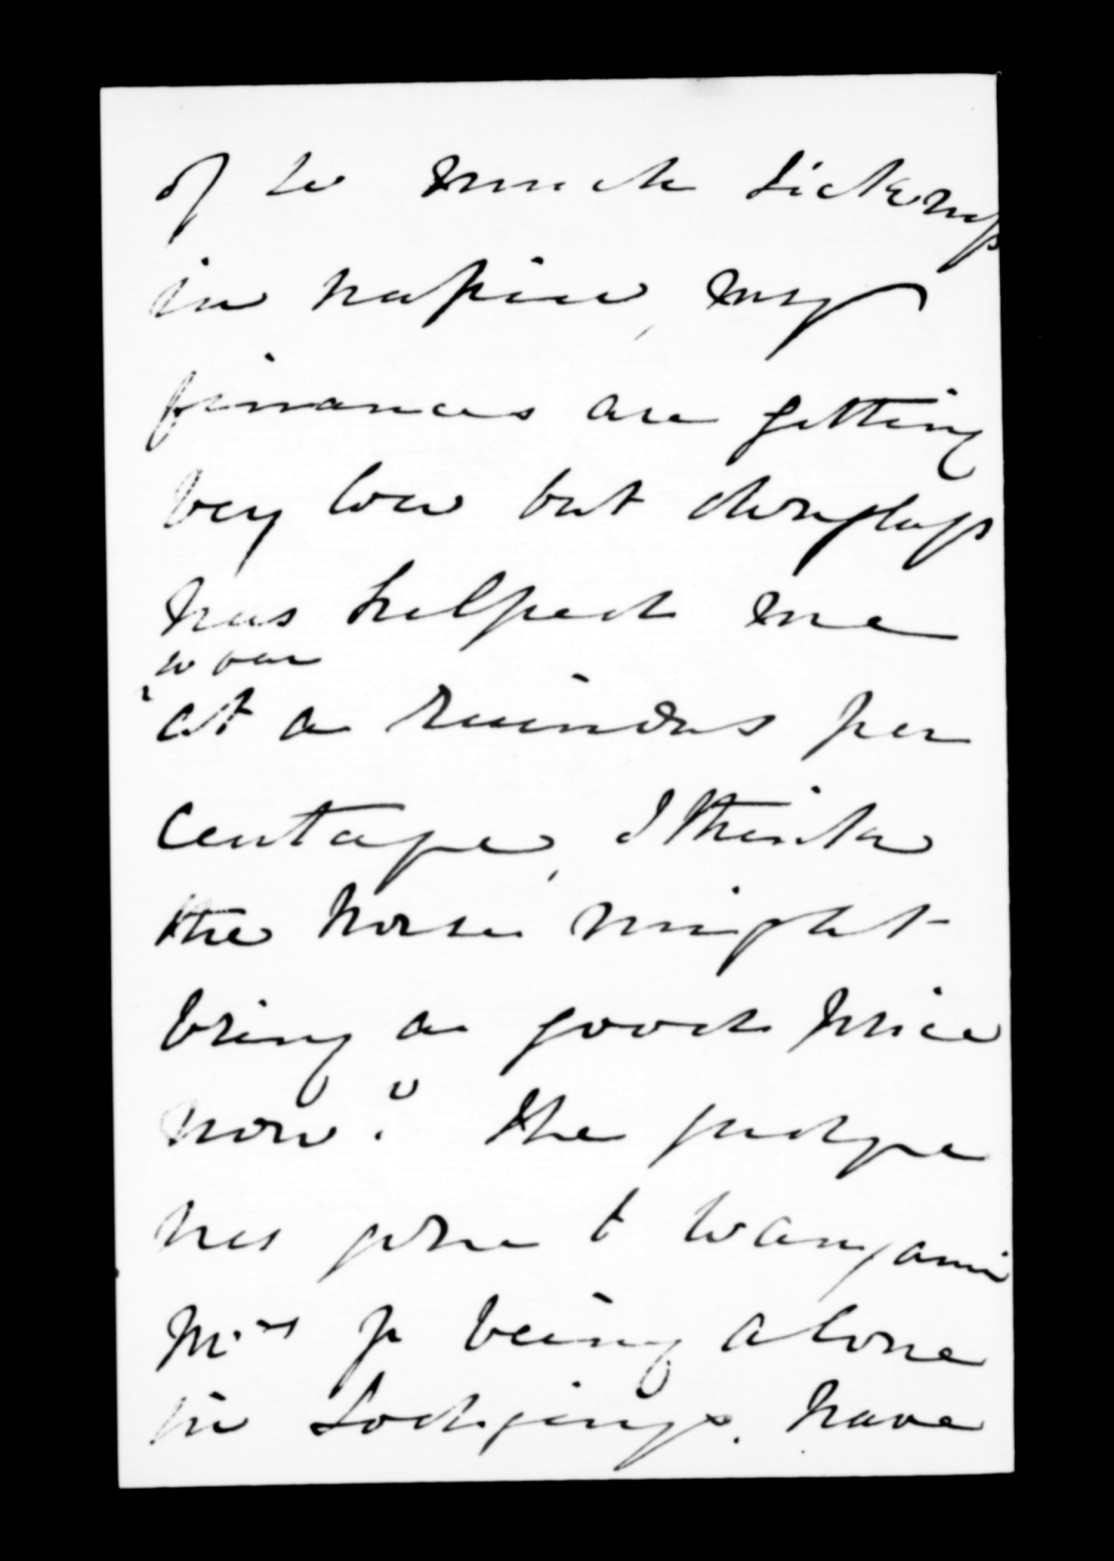 of so much sickness
in napier, my
finances are getting
very low but douglass
has helped me
to our
at a ruinous per
centage, I think
the horse might
bring a good price
now." The judge
has gone t Wanganui
Mrs p being alone
in Lodgings. have